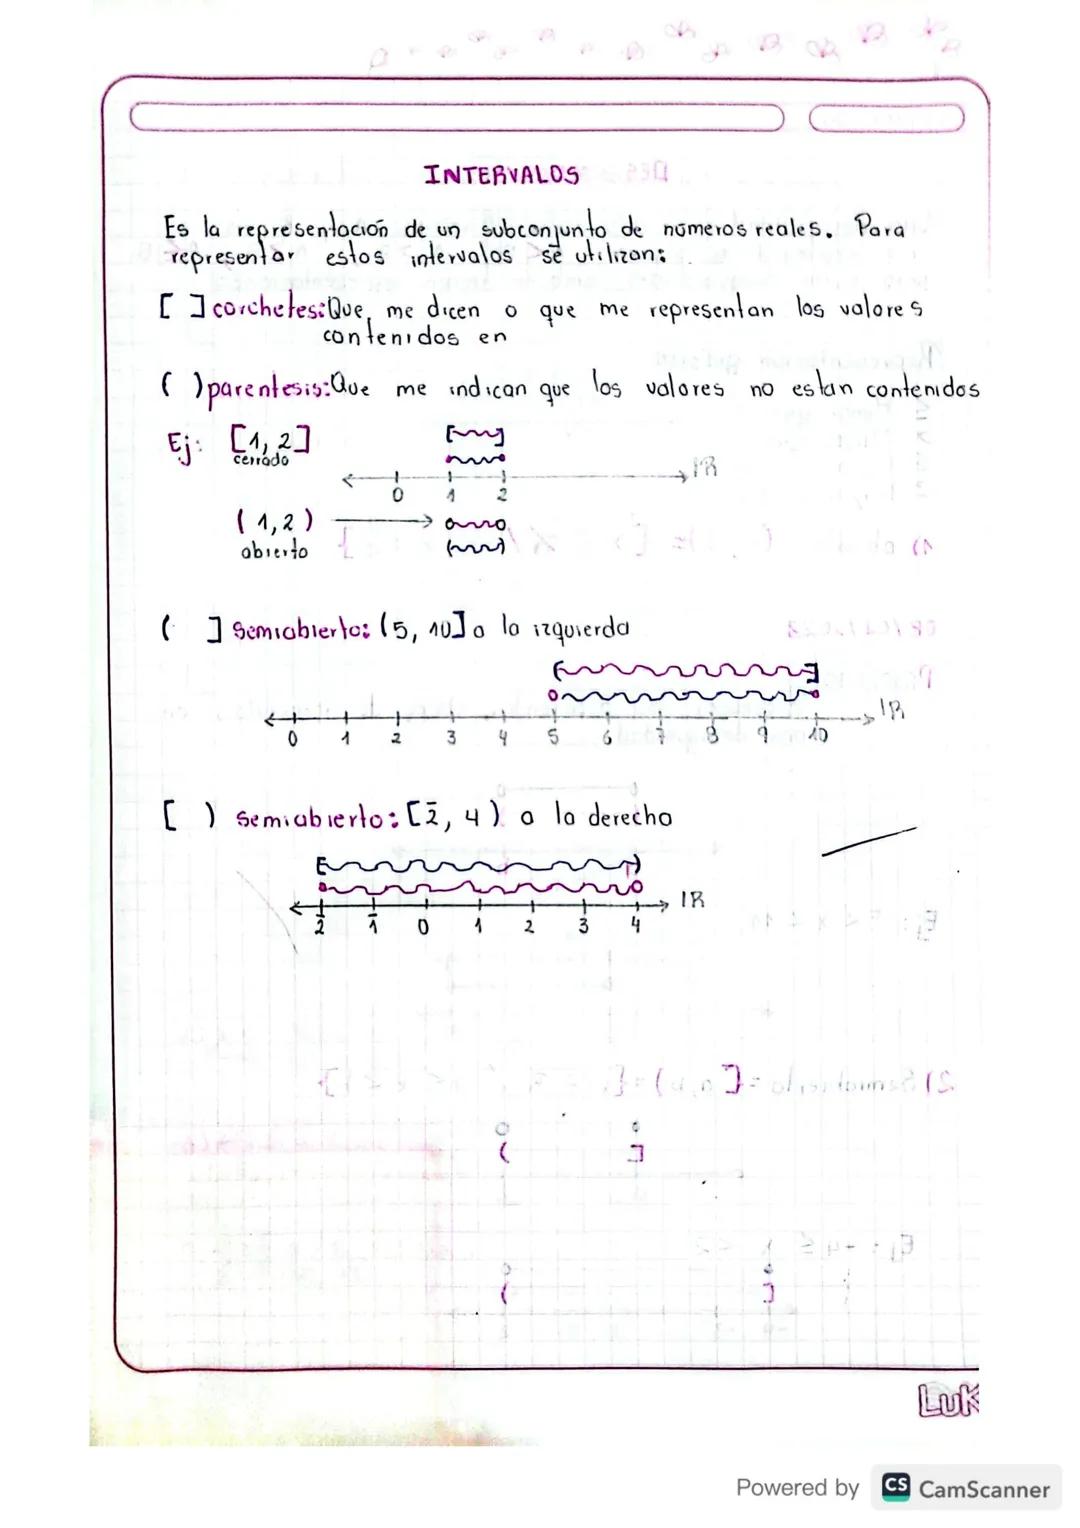 INTERVALOS
Es la representación de un subconjunto de números reales. Para
representar estos intervalos se utilizan:
[ ] corchetes: Que me dicen o que me representan los valores
contenidos en
( ) parentesis: Que me indican que los valores no estan contenidos
Ej: [1, 2]
cerrado
IR
0 1 2
(1,2)
abierto
( ] Semiabierto: (5, 10] a la izquierda
IR
0 1 2 3 4 5 6 7 8 9 10
[ ) semiabierto: [-2, 4) a la derecha
IR
-2 -1 0 1 2 3 4
( ]
( ]
LUK
Powered by CS CamScanner